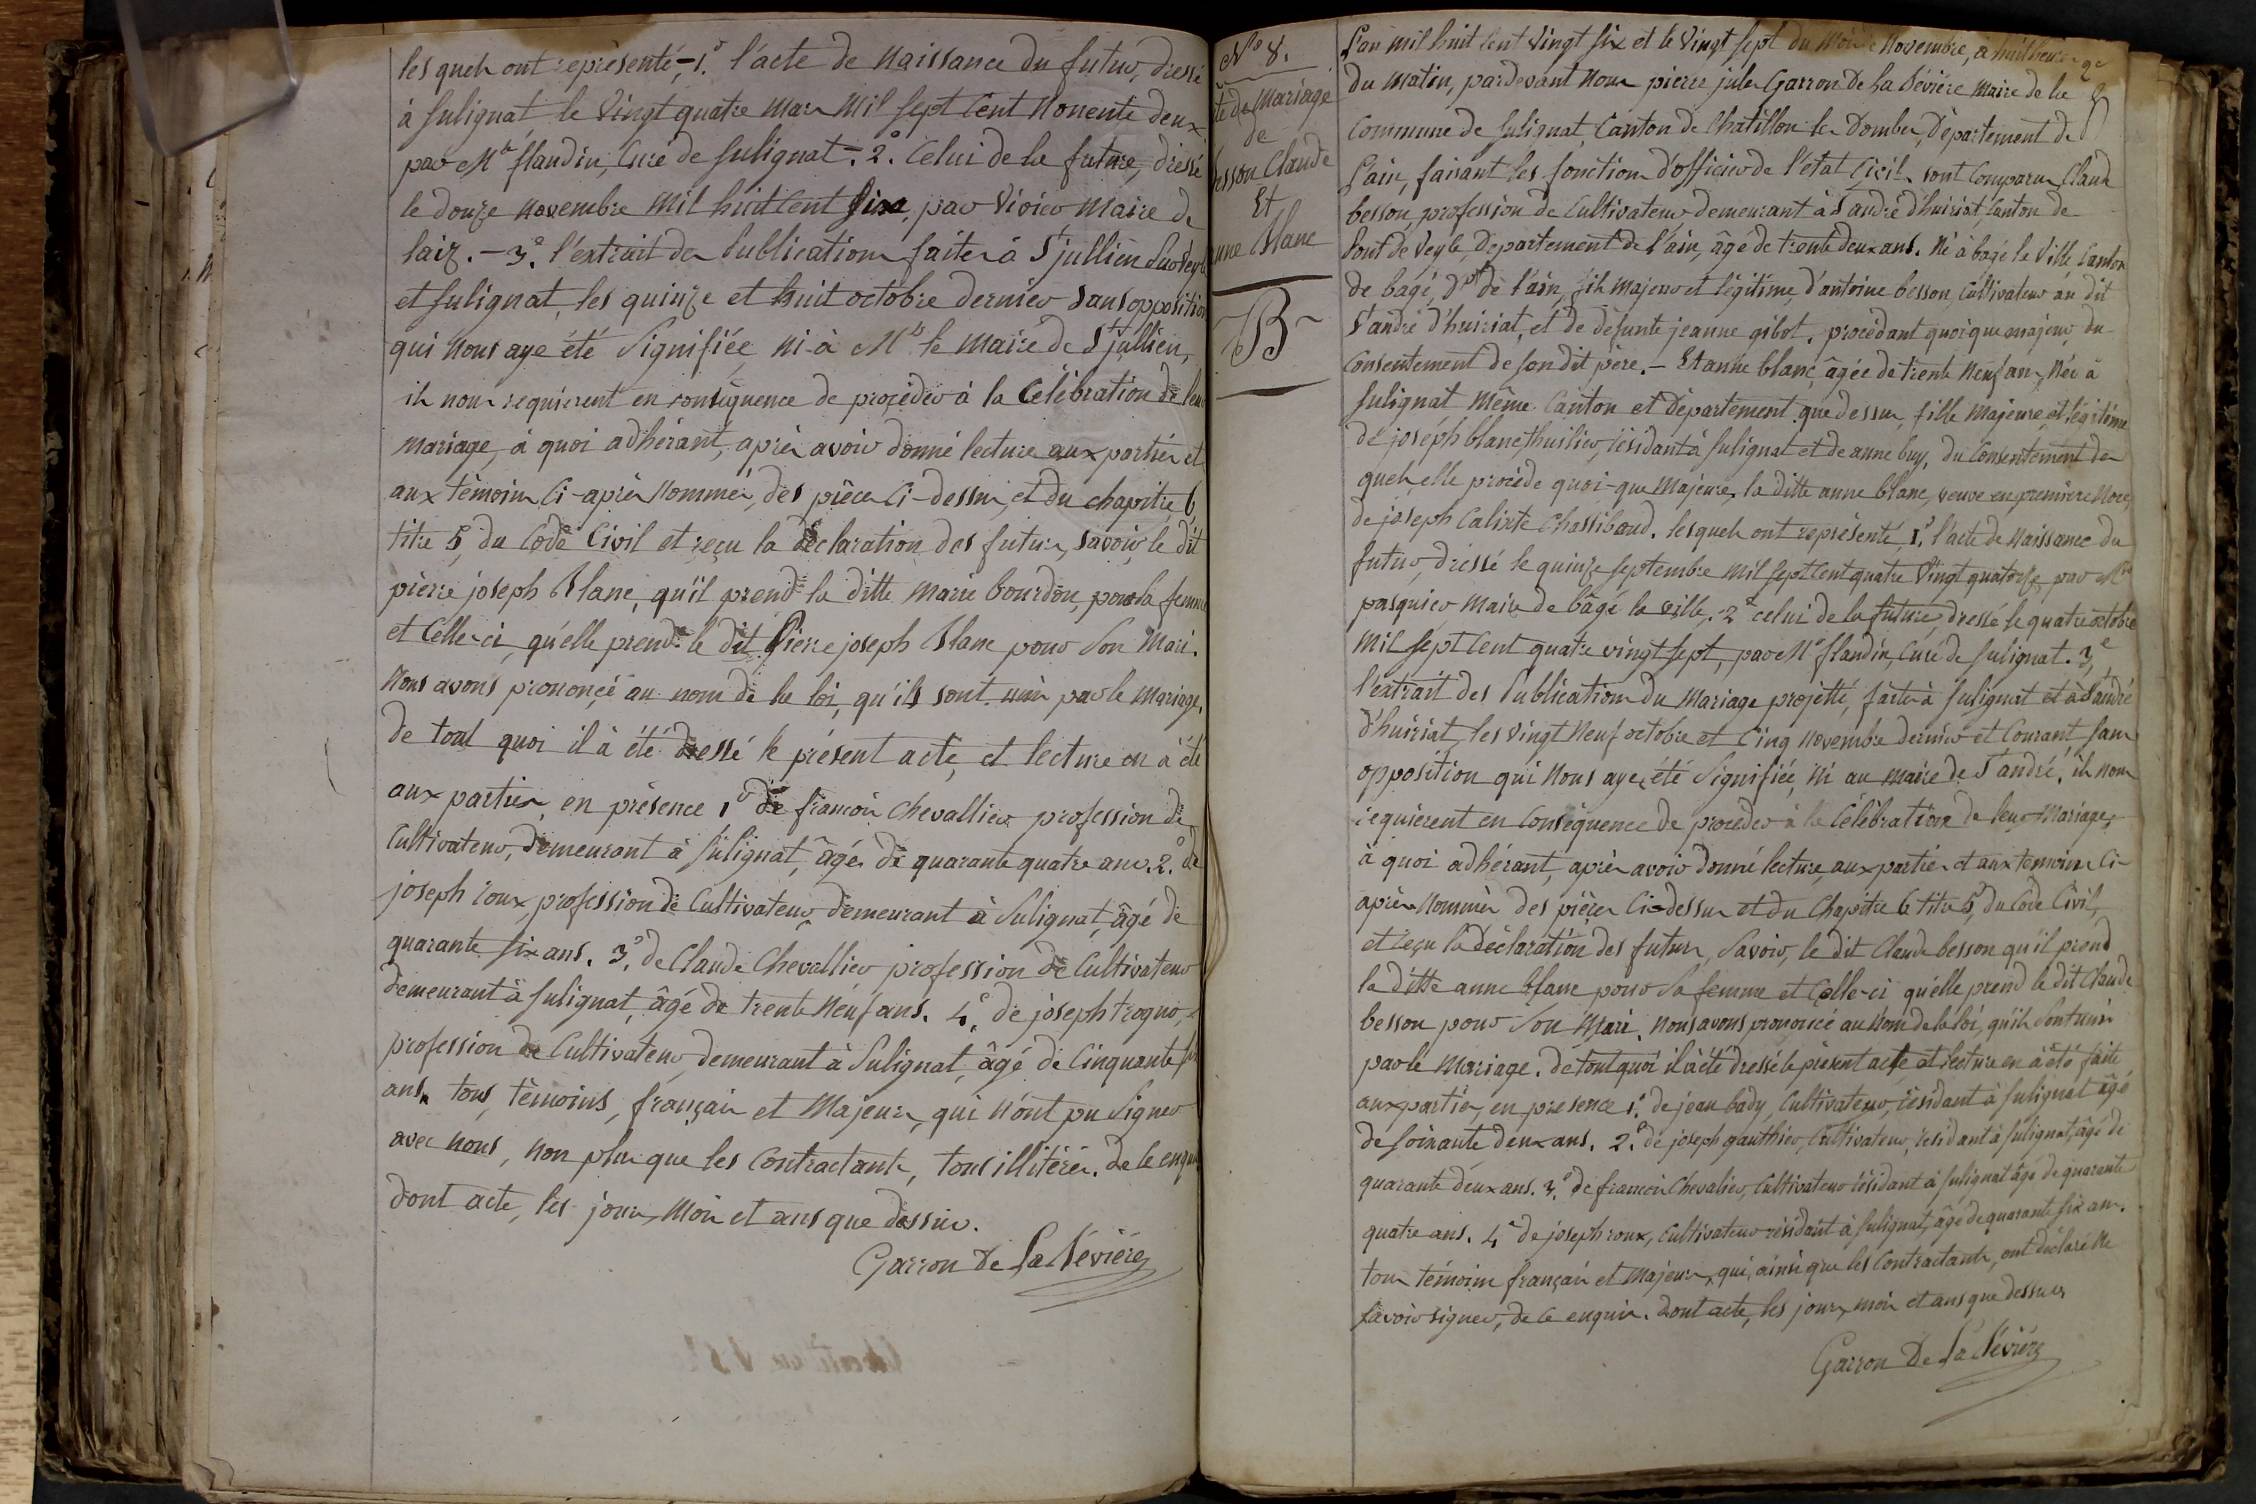 les quels ont représenté, – 1.° l'acte de Naissance du futur, dressé
à Sulignat le Vingt quatre Mars Mil Sept Cent Nonente deux
par Mr flandin, Curé de Sulignat – 2.° Celui de la future, dressé
le douze novembre Mil huit Cent Six, par Vivier Maire de
laiz. – 3.° l'extrait des Publications faites à St jullien Sur Veyle
et Sulignat, les quinze et huit octobre dernier sans opposition
qui Nous aye été Signifiée, ni à Mr le Maire de St jullien,
ils nous requierent en conséquence de procéder à la Célébration de leur
mariage, à quoi adhérant, après avoir donné lecture aux parties et
aux témoins Ci-après Nommés, des pièces Ci-dessus, et du chapitre 6,
titre 5, du Code Civil et reçu la déclaration des futurs, savoir, le dit
pierre joseph Blanc, qu'il prend la ditte Marie bourdon, pour sa femme
et Celle-ci, qu'elle prend le dit Pierre joseph Blanc pour Son Mari.
Nous avons prononcé au nom de la loi, qu'ils sont unis par le Mariage,
de tout quoi il à été dressé le présent acte, et lecture en à été
aux parties, en présence 1° de françois Chevallier profession de
Cultivateur, demeurant à Sulignat, âgé de quarante quatre ans. 2.° de
joseph roux, profession de Cultivateur, demeurant à Sulignat, âgé de
quarante six ans. 3.° de Claude Chevallier profession de Cultivateur
demeurant à Sulignat, âgé de trente Neuf ans. 4.° de joseph
profession de Cultivateur, demeurant à Sulignat, âgé de Cinquante
ans. tous, témoins, français et Majeurs, qui n'ont pu Signer
avec nous, non plus que les Contractants, tous illitérés. de le enquis
dont acte, les jour, Mois et ans que dessus.
Garron De La Bévière
N° 8.
te de Mariage
de
besson Claude
Et
anne Blanc
B
L'an Mil huit Cent Vingt Six et le Vingt Sept du Mois de Novembre, à huit heures
du Matin, pardevant Nous pierre jules Garron De La Bévière Maire de la
Commune de Sulignat, Canton de Chatillon les Dombes, Département de
l'ain, faisant les fonctions d'officier de l'état Civil. sont Comparus Claude
besson, profession de Cultivateur demeurant à St andré d'huiriat, Canton de
Pont de Veyle, Département de l'ain, âgé de trente deux ans. Né à bagé le Ville Canton
de bagé, Dpt de l'ain, fils Majeur et légitime d'antoine besson, Cultivateur au dit
St andré d'huiriat, et de défunte jeanne gibot, procédant quoique majeur, du
Consentement de son dit père. – Et anne blanc, âgée de trente Neuf ans, Née à
Sulignat Même Canton et Département que dessus, fille Majeure et légitime
de joseph blanc thuilier, résidant à Sulignat et de anne buy, du Consentement des
quels elle procède quoi-que Majeure, la ditte anne blanc, veuve en premiere Noces
de joseph Calixte Chassiboud. lesquels ont représenté, 1.° l'acte de Naissance du
futur, dressé le quinze Septembre Mil Sept Cent quatre Vingt quatorze, par Mr
pasquier Maire de bâgé la ville. 2.° celui de la future, dressé le quatre octobre
Mil Sept Cent quatre vingt sept, par Mr flandin, Curé de Sulignat. 3.°
l'extrait des Publications du Mariage projetté, faites à Sulignat et à St andré
d'huiriat, les Vingt Neuf octobre et Cinq Novembre dernier et Courant sans
opposition qui Nous aye été Signifiée, Ni au Maire de St andré, ils nous
requièrent en Conséquence de procéder à la Célébration de leur Mariage,
à quoi adhérant, après avoir donné lecture, aux parties et aux temoins Ci-
après Nommés des pièces Ci-dessus et du Chapitre 6 titre 5, du Code Civil,
et reçu la déclaration des futurs, Savoir, le dit Claude besson qu'il prend
la ditte anne blanc pour Sa femme et Celle-ci qu'elle prend le dit Claude
besson pour Son Mari. Nous avons prononcé au Nom de la loi, qu'ils Sont unis
par le Mariage. de tout quoi il à été dressé le présent acte, et lecture en à été faite
aux parties, en présence 1.° de jean bady, Cultivateur, résidant à Sulignat âgé
de Soixante deux ans. 2.° de joseph gauthier, Cultivateur, résidant à Sulignat, âgé de
quarante deux ans. 3.° de françois Chevalier, Cultivateur résidant à Sulignat âgé de quarante
quatre ans. 4.° de joseph roux, Cultivateur résidant à Sulignat, âgé de quarante six ans.
tous témoins français et Majeurs, qui, ainsi que les Contractants, ont déclaré Ne
savoir signer, de ce enquis. dont acte, les jour, mois et ans que dessus
Garron De La Bévière